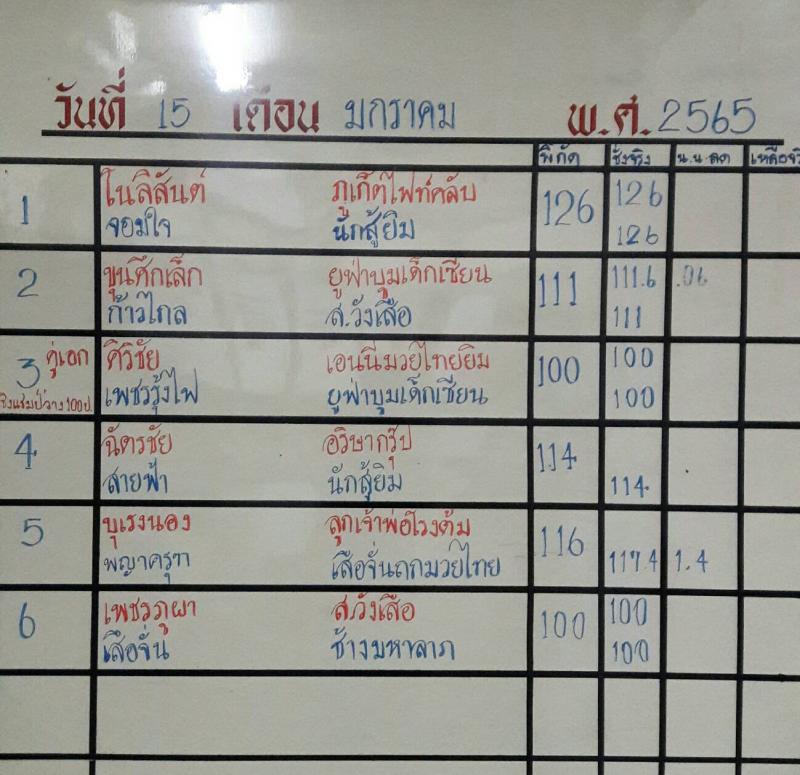 วันที่ 15 เดือน มกราคม พ.ศ. 2565
พิกัด ชั่งจริง น.น.ลด
1 โนลิสันต์ ภูเก็ตไฟท์คลับ 126 126
จอมใจ นักสู้ยิม 126
2 ขุนศึกเล็ก ยูฟ่าบุมเด็กเซียน 111 111.6 .06
ก้าวไกล ส.วังเสือ 111
3 คู่เอก ศิวิชัย เอนนี่มวยไทยยิม 100 100
ชิงแชมป์ว่าง 100 ป. เพชรรุ้งไฟ ยูฟ่าบุมเด็กเซียน 100
4 ฉัตรชัย อวิษากรุ๊ป 114
สายฟ้า นักสู้ยิม 114
5 บุเรงนอง ลูกเจ้าพ่อโรงต้ม 116
พญาครุฑ เสือจั่นถกมวยไทย 117.4 1.4
6 เพชรภูผา ส.วังเสือ 100 100
เสือจั่น ช้างมหาลาภ 100